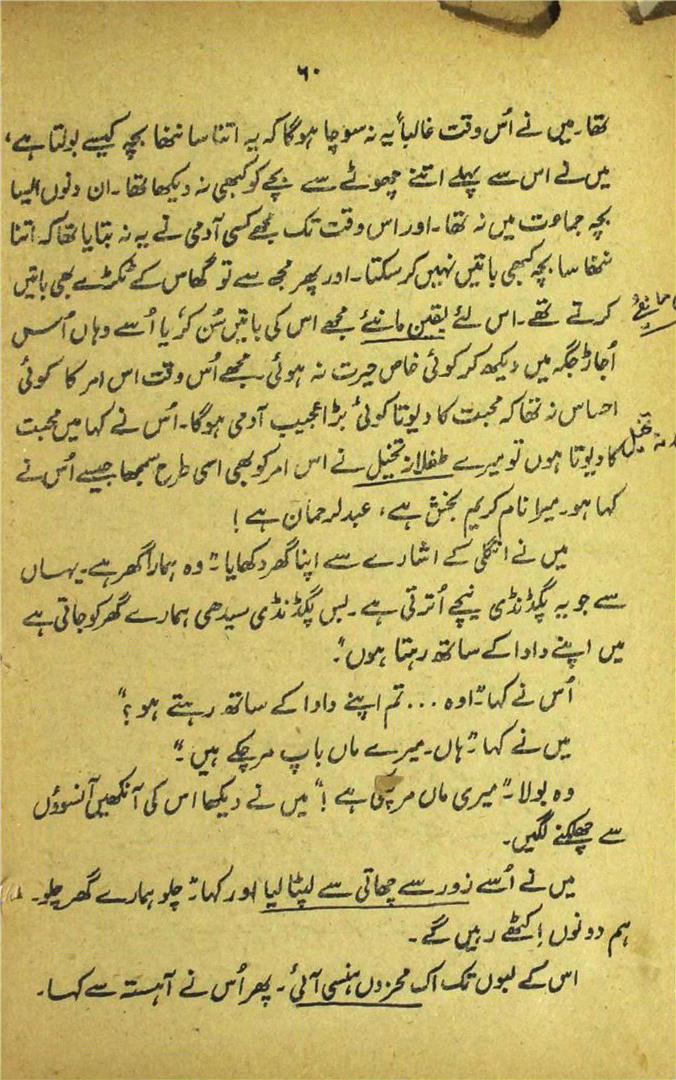 ۶۰
تھا۔ میں نے اُس وقت غالباً یہ نہ سوچا ہوگا کہ یہ اتنا سا ننھا بچہ کیسے بولتا ہے،
میں نے اس سے پہلے اتنے چھوٹے سے بچے کو کبھی نہ دیکھا تھا۔ ان دنوں ایسا
بچہ جماعت میں نہ تھا۔ اور اس وقت تک مجھے کسی آدمی نے یہ نہ بتایا تھا کہ اتنا
ننھا سا بچہ کبھی باتیں نہیں کر سکتا۔ اور پھر مجھ سے تو گھاس کے ٹکڑے بھی باتیں
کرتے تھے۔ اس لئے یقین مانیئے مجھے اس کی باتیں سُن کر یا اُسے وہاں اُس
اُجاڑ جگہ میں دیکھ کر کوئی خاص حیرت نہ ہوئی۔ مجھے اُس وقت اس امر کا کوئی
احساس نہ تھا کہ محبت کا دیوتا کوئی بڑا عجیب آدمی ہوگا۔ اُس نے کہا میں محبت
کا دیوتا ہوں تو میرے طفلانہ تخیل نے اس امر کو بھی اسی طرح سمجھا جیسے اُس نے
کہا ہو۔ میرا نام کریم بخش ہے، عبدلرحمان ہے!
میں نے انگلی کے اشارے سے اپنا گھر دکھایا۔" وہ ہمارا گھر ہے۔ یہاں
سے جو یہ پگڈنڈی نیچے اُترتی ہے۔ بس پگڈنڈی سیدھی ہمارے گھر کو جاتی ہے
میں اپنے دادا کے ساتھ رہتا ہوں"۔
اُس نے کہا۔" اوہ ... تم اپنے دادا کے ساتھ رہتے ہو؟"
میں نے کہا۔" ہاں۔ میرے ماں باپ مر چکے ہیں۔"
وہ بولا۔" میری ماں مر چکی ہے!" میں نے دیکھا اس کی آنکھیں آنسوؤں
سے چھلکنے لگیں۔
میں نے اُسے زور سے چھاتی سے لپٹا لیا اور کہا۔" چلو ہمارے گھر چلو۔
ہم دونوں اِکٹھے رہیں گے۔
اس کے لبوں تک اک محزوں ہنسی آئی۔ پھر اُس نے آہستہ سے کہا۔